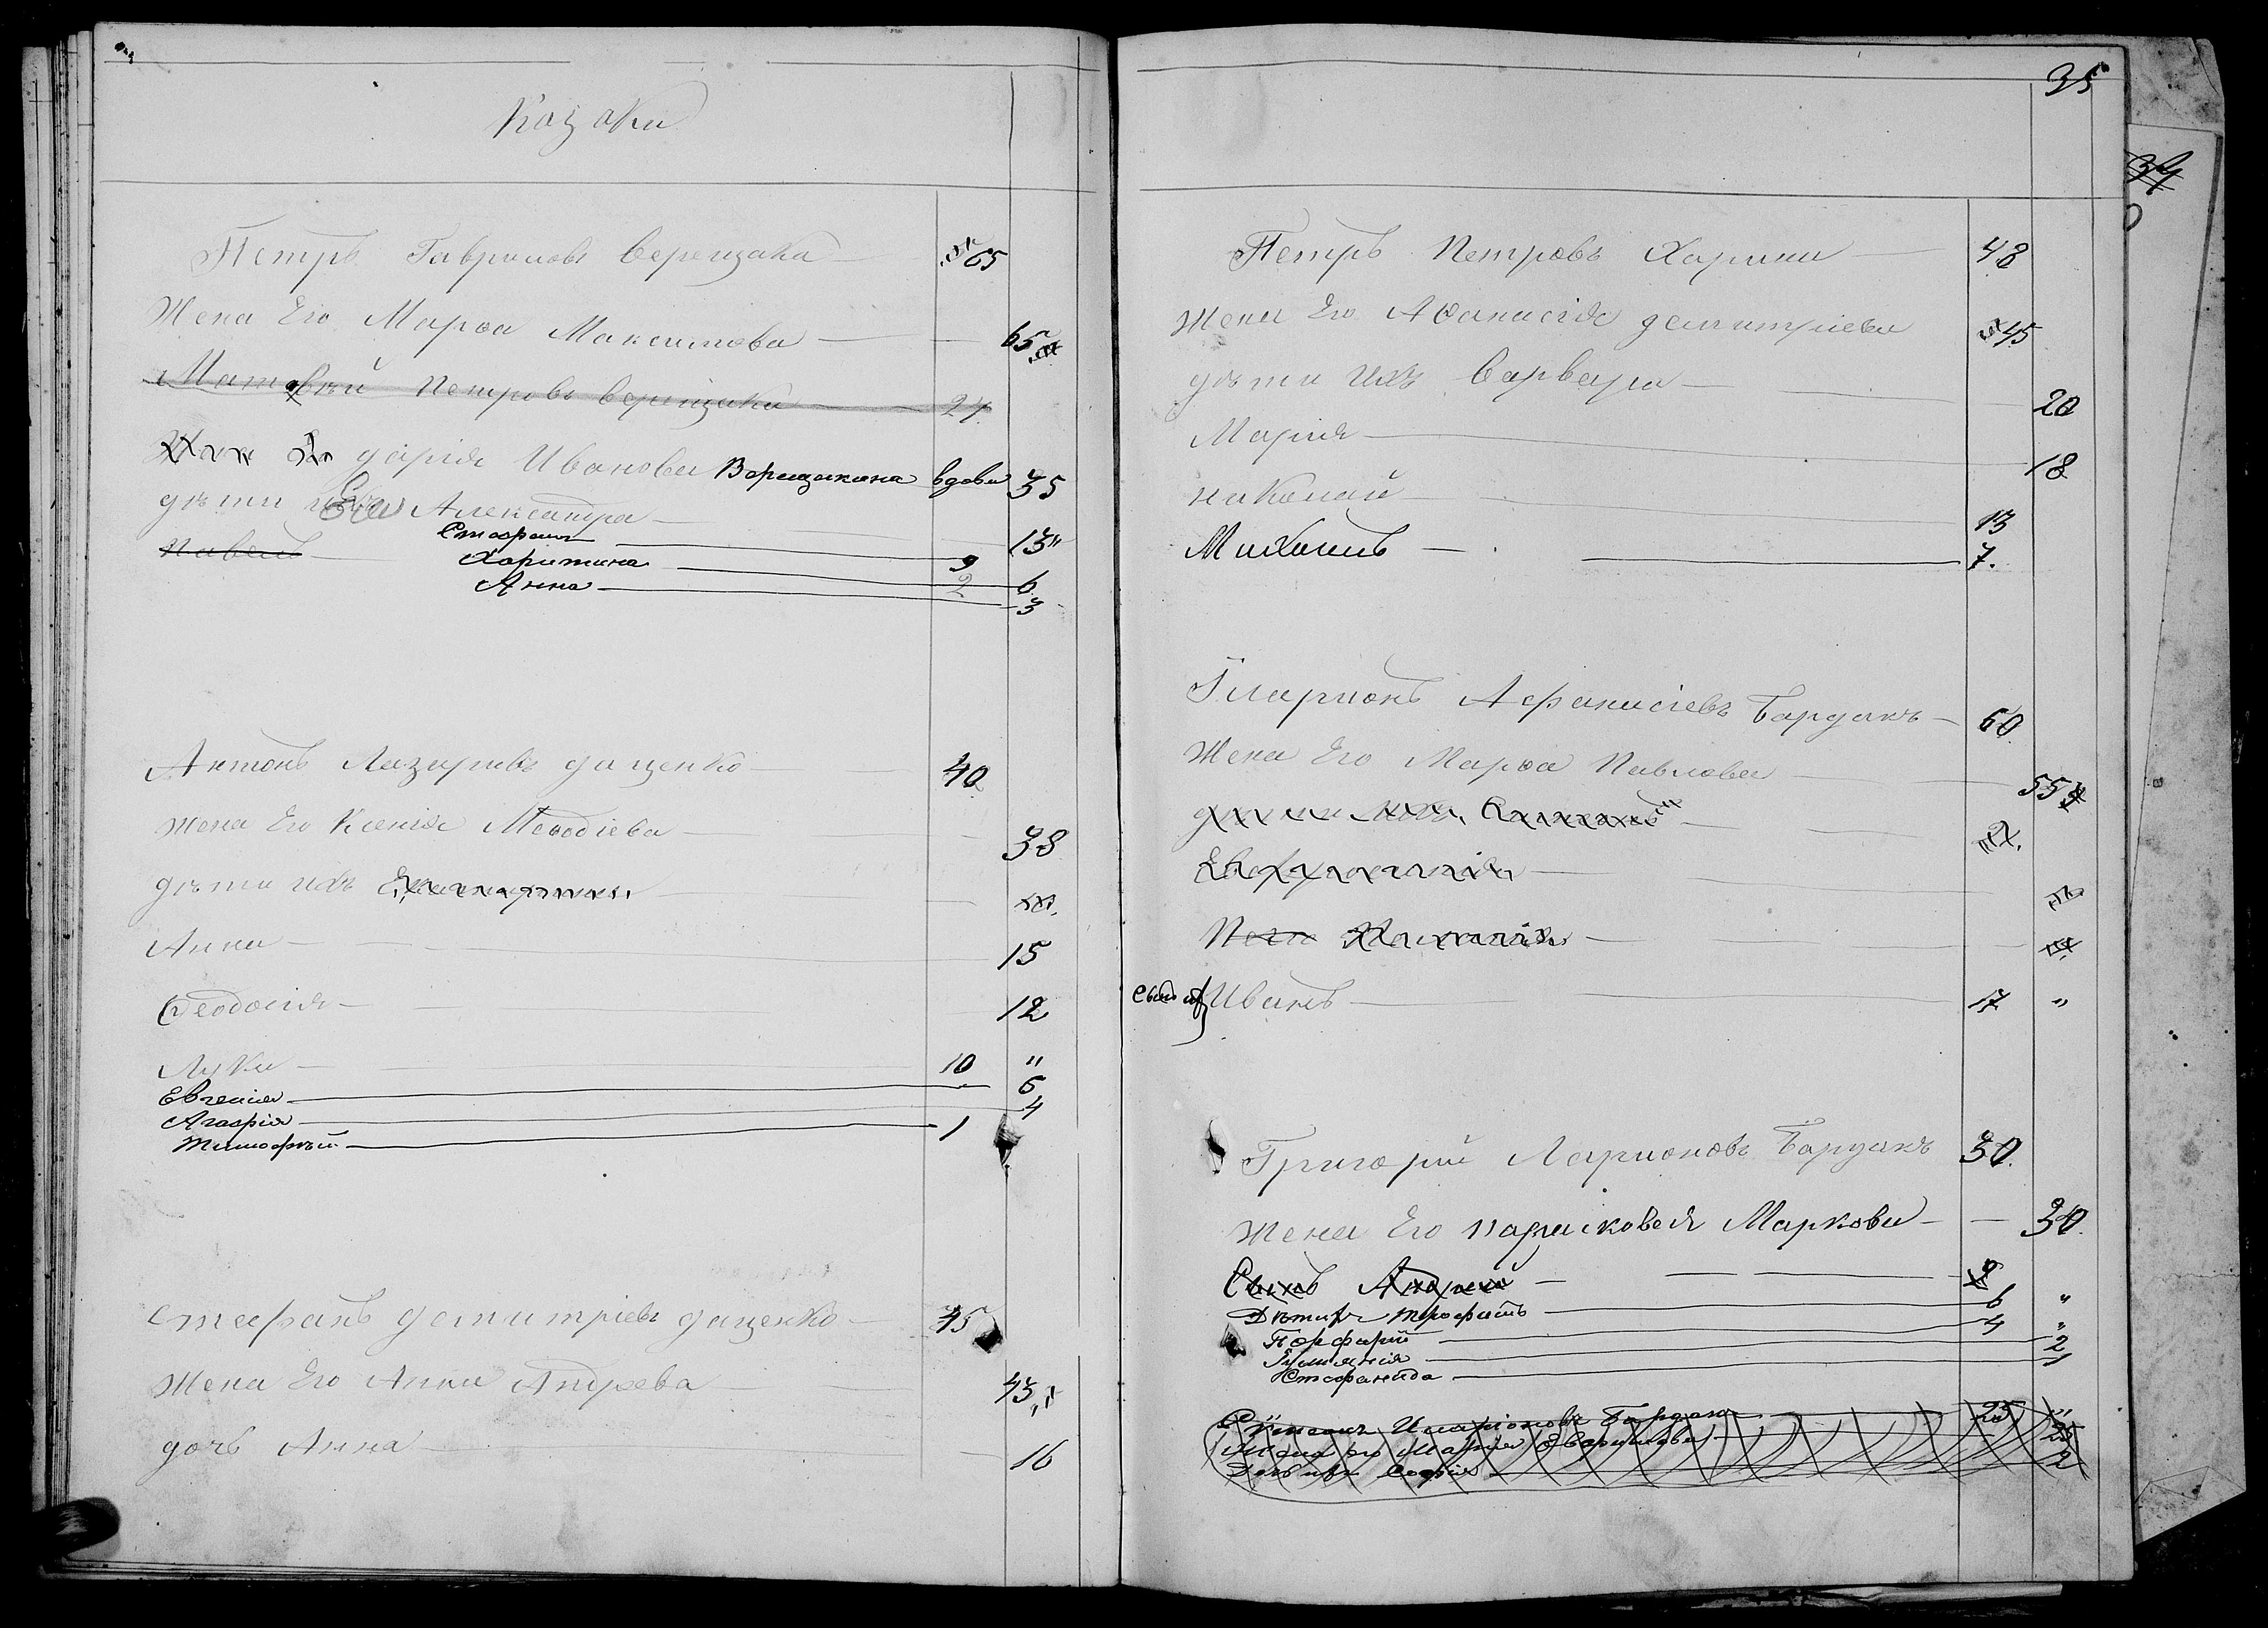 Козаки
Петръ Гавриловъ Верещака 65
Жена Его Марѳа Максимова 65
Матвѣй Петровъ Верещака 24
Дарія Иванова Верещакина вдова 35
дѣти Ея Александра 13
Стефанъ 9
Павелъ
Харитина 2 6
Анна 3
Антонъ Лазаревъ Даценко 40
Жена Его Ксенія Меѳодіева 38
дѣти ихъ Екатерина
Анна 15
Ѳеодосія 12
Лука 10 "
Евгенія 6
Агафія 4
Тимофѣй 1
Стефанъ Демитріевъ Даценко 45
Жена Его Анна Андреева 43
дочь Анна 16
35
34
Петръ Петровъ 48
Жена Его Аѳанасія Демитріева 45
дѣти Ихъ Варвара 20
Марія 18
Николай 13
Михаилъ 7.
Іларионъ Афанасіевъ Бардакъ 60
Жена Его Марѳа Павлова 55
дѣти ихъ
Евфросинія
Сынъ их Иванъ 17 "
Григорій Ларионовъ Бардакъ 30.
Жена Его Парасковея Маркова 30.
Сынъ Андрей 9
Дѣти их Трофимъ 6 "
Порфирій 4 "
2
Стефанида 1
Иларіоновъ Бардакъ 25 "
Жена его Марія 25
Дочь ихъ Софія 2